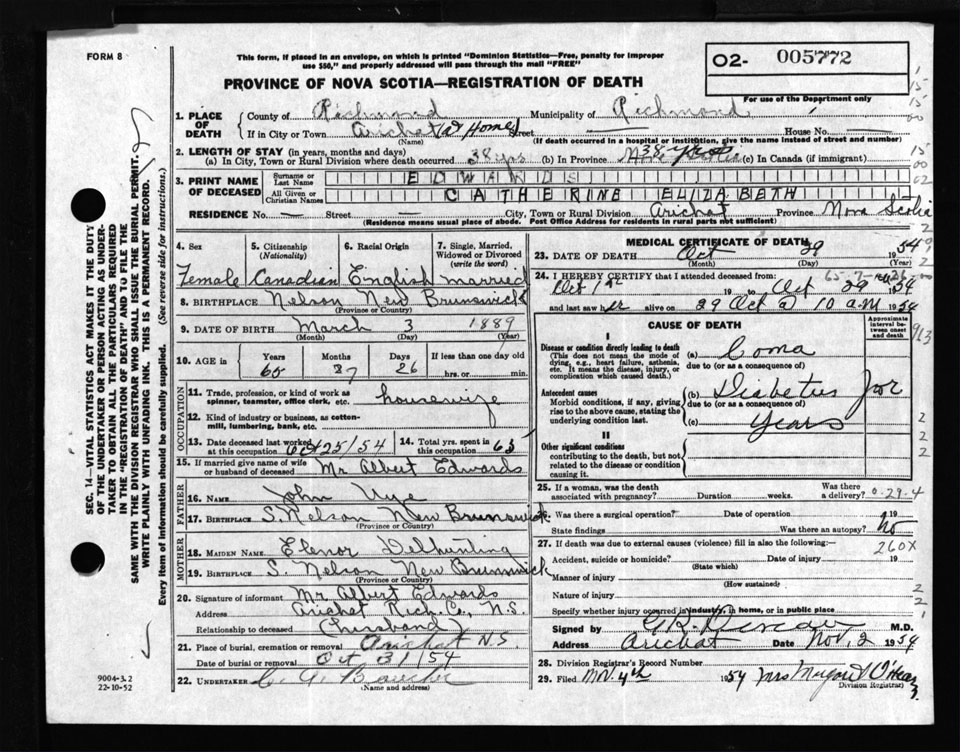 FORM 8
This form, if placed in an envelope, on which is printed "Dominion Statistics—Free, penalty for improper
use $50," and properly addressed will pass through the mail "FREE"
PROVINCE OF NOVA SCOTIA—REGISTRATION OF DEATH
02- 005772
For use of the Department only
1. PLACE OF DEATH
County of Richmond Municipality of Richmond
If in City or Town Arichat (at Home) Street House No.
(Name) (If death occurred in a hospital or institution, give the name instead of street and number)
2. LENGTH OF STAY (in years, months and days)
(a) In City, Town or Rural Division where death occurred 38 yrs (b) In Province 38 years (c) In Canada (if immigrant)
3. PRINT NAME OF DECEASED
Surname or Last Name EDWARDS
All Given or Christian Names CATHERINE ELIZABETH
RESIDENCE No. — Street — City, Town or Rural Division Arichat Province Nova Scotia
(Residence means usual place of abode. Post Office Address for residents in rural parts not sufficient)
4. Sex 5. Citizenship (Nationality) 6. Racial Origin 7. Single, Married, Widowed or Divorced (write the word)
Female Canadian English married
8. BIRTHPLACE Nelson New Brunswick
(Province or Country)
9. DATE OF BIRTH March 3 1889
(Month) (Day) (Year)
10. AGE in Years Months Days If less than one day old
65 7 26 hrs. or min.
OCCUPATION
11. Trade, profession, or kind of work as spinner, teamster, office clerk, etc. housewife
12. Kind of industry or business, as cotton-mill, lumbering, bank, etc.
13. Date deceased last worked at this occupation Oct 25/54 14. Total yrs. spent in this occupation 65
15. If married give name of wife or husband of deceased Mr Albert Edwards
FATHER
16. NAME John
17. BIRTHPLACE S. Nelson New Brunswick
(Province or Country)
MOTHER
18. MAIDEN NAME Elenor
19. BIRTHPLACE S. Nelson New Brunswick
(Province or Country)
20. Signature of informant Mr Albert Edwards
Address Arichat Rich. Co., N.S.
Relationship to deceased (husband)
21. Place of burial, cremation or removal Arichat N.S.
Date of burial or removal Oct 31/54
22. UNDERTAKER
(Name and address)
MEDICAL CERTIFICATE OF DEATH
23. DATE OF DEATH Oct 29 1954
(Month) (Day) (Year)
24. I HEREBY CERTIFY that I attended deceased from:
Oct 1st to Oct 29 1954
and last saw her alive on 29 Oct @ 10 a.m 1954
CAUSE OF DEATH
Approximate interval between onset and death
I
Disease or condition directly leading to death (a) Coma
(This does not mean the mode of dying, e.g., heart failure, asthenia, etc. It means the disease, injury, or complication which caused death.)
due to (or as a consequence of)
Antecedent causes (b) Diabetes for
Morbid conditions, if any, giving rise to the above cause, stating the underlying condition last.
due to (or as a consequence of)
(c) Years
II
Other significant conditions
contributing to the death, but not related to the disease or condition causing it.
25. If a woman, was the death associated with pregnancy? Duration weeks. Was there a delivery?
26. Was there a surgical operation? Date of operation 19
State findings Was there an autopsy? No
27. If death was due to external causes (violence) fill in also the following: 260X
Accident, suicide or homicide? Date of injury 19
(State which)
Manner of injury
(How sustained)
Nature of injury
Specify whether injury occurred in industry, in home, or in public place
Signed by M.D.
Address Arichat Date Nov. 2 1954
28. Division Registrar's Record Number
29. Filed Nov. 4th 1954 Mrs
Division Registrar)
SEC. 14—VITAL STATISTICS ACT MAKES IT THE DUTY
OF THE UNDERTAKER OR PERSON ACTING AS UNDERTAKER TO OBTAIN ALL THE PARTICULARS REQUIRED
IN THE "REGISTRATION OF DEATH" AND TO FILE THE
SAME WITH THE DIVISION REGISTRAR WHO SHALL ISSUE THE BURIAL PERMIT.
WRITE PLAINLY WITH UNFADING INK. THIS IS A PERMANENT RECORD.
Every item of information should be carefully supplied. (See reverse side for instructions.)
9004-3.2
22-10-52